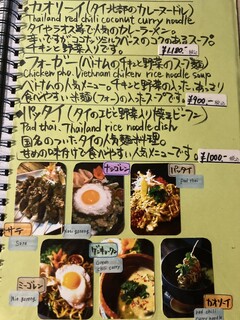 ・カオソーイ(タイ北部のカレーヌードル)
Thailand red chili coconut curry noodle
タイやラオス等で人気のカレーラーメン
辛さ
チキンと野菜入りです。
¥1,180-
・フォーガー(ベトナムのチキンと野菜のスープ麺)
Chicken pho. Vietnam chicken rice noodle soup
ベトナムの人気メニュー。チキンと野菜の入った、あっさり
食べやすい米麺(フォー)の入ったスープです。
¥900-
・パッタイ(タイのエビと野菜入り焼きビーフン)
Pad thai. Thailand rice noodle dish
国名のついたタイの人気麺料理。
甘めの味付けで食べやすい人気メニューです。
¥1,000-
ナシゴレン
パッタイ
Pad thai
サテー
Sate
Nasi goreng
ミーゴレン
Mie goreng
Green curry
カオソーイ
red chili